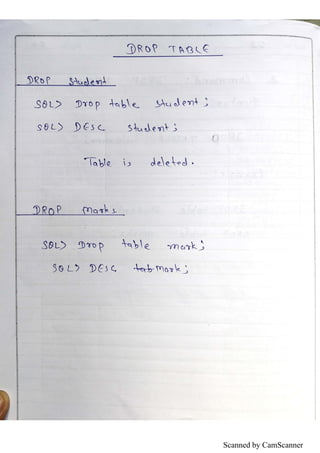 DROP TABLE
DROP Student
SQL> Drop table student;
SQL> DESC student;
Table is deleted.
DROP Marks
SQL> Drop table mark;
SQL> DESC tab mark;
Scanned by CamScanner